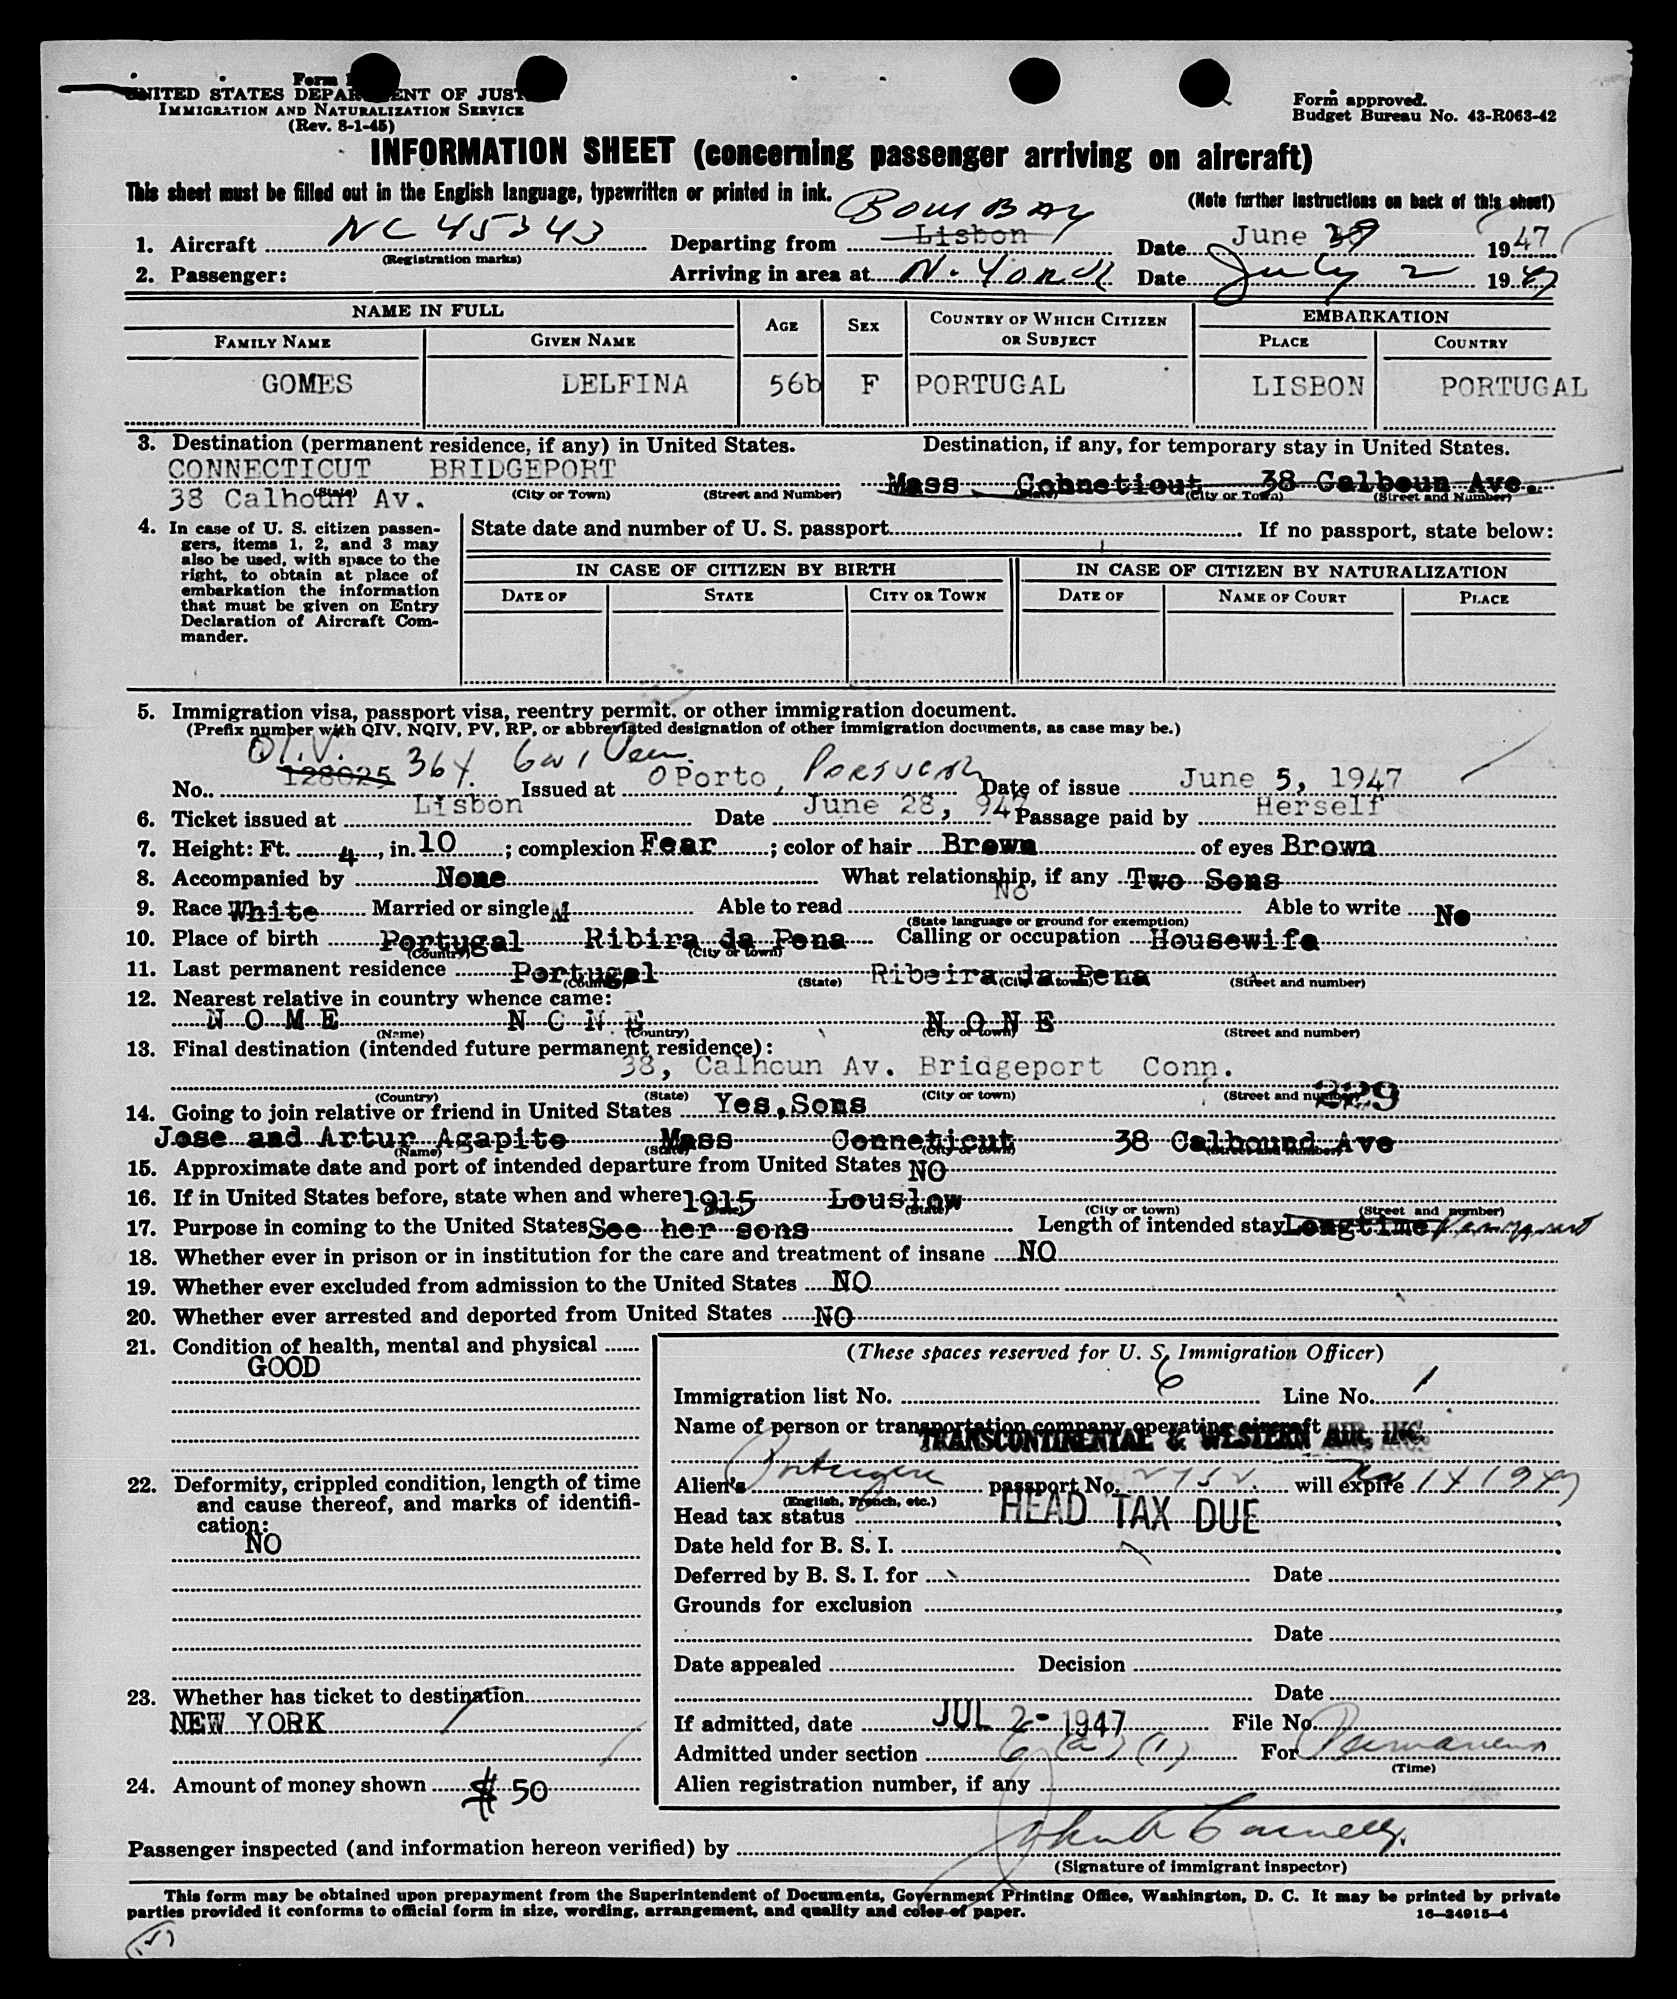 Form
UNITED STATES DEPARTMENT OF JUSTICE
IMMIGRATION AND NATURALIZATION SERVICE
(Rev. 8-1-45)
Form approved.
Budget Bureau No. 43-R063-42
INFORMATION SHEET (concerning passenger arriving on aircraft)
This sheet must be filled out in the English language, typewritten or printed in ink.
(Note further instructions on back of this sheet)
BOMBAY
1. Aircraft NC 45343 Departing from Lisbon Date June 1947
(Registration marks)
2. Passenger: Arriving in area at N. York Date July 2 1947
NAME IN FULL AGE SEX COUNTRY OF WHICH CITIZEN OR SUBJECT EMBARKATION
FAMILY NAME GIVEN NAME PLACE COUNTRY
GOMES DELFINA 56b F PORTUGAL LISBON PORTUGAL
3. Destination (permanent residence, if any) in United States. Destination, if any, for temporary stay in United States.
CONNECTICUT BRIDGEPORT Mass Conneticut 38 Calhoun Ave.
38 Calhoun Av. (State) (City or Town) (Street and Number) (State) (City or Town) (Street and Number)
4. In case of U. S. citizen passengers, items 1, 2, and 3 may also be used, with space to the right, to obtain at place of embarkation the information that must be given on Entry Declaration of Aircraft Commander.
State date and number of U. S. passport If no passport, state below:
IN CASE OF CITIZEN BY BIRTH IN CASE OF CITIZEN BY NATURALIZATION
DATE OF STATE CITY OR TOWN DATE OF NAME OF COURT PLACE
5. Immigration visa, passport visa, reentry permit, or other immigration document.
(Prefix number with QIV, NQIV, PV, RP, or abbreviated designation of other immigration documents, as case may be.)
Q.I.V.
No. 128025 364 Issued at OPorto, Portugal Date of issue June 5, 1947
6. Ticket issued at Lisbon Date June 28, 947 Passage paid by Herself
7. Height: Ft. 4, in. 10; complexion Fear; color of hair Brown of eyes Brown
8. Accompanied by None What relationship, if any Two Sons
9. Race White Married or single M Able to read No Able to write No
(State language or ground for exemption)
10. Place of birth Portugal Ribira da Pena Calling or occupation Housewife
(Country) (City or town)
11. Last permanent residence Portugal Ribeira da Pena
(Country) (State) (City or town) (Street and number)
12. Nearest relative in country whence came:
N O M E N O N E N O N E
(Name) (Country) (City or town) (Street and number)
13. Final destination (intended future permanent residence):
38, Calhoun Av. Bridgeport Conn.
(Country) (State) (City or town) (Street and number) 229
14. Going to join relative or friend in United States Yes, Sons
Jose and Artur Agapito Mass Conneticut 38 Calhound Ave
(Name) (State) (City or town) (Street and number)
15. Approximate date and port of intended departure from United States NO
16. If in United States before, state when and where 1915 Louslow
(Date) (State) (City or town) (Street and number)
17. Purpose in coming to the United States See her sons Length of intended stay Longtime Permanent
18. Whether ever in prison or in institution for the care and treatment of insane NO
19. Whether ever excluded from admission to the United States NO
20. Whether ever arrested and deported from United States NO
21. Condition of health, mental and physical
GOOD
22. Deformity, crippled condition, length of time and cause thereof, and marks of identification:
NO
23. Whether has ticket to destination
NEW YORK
24. Amount of money shown $ 50
(These spaces reserved for U. S. Immigration Officer)
Immigration list No. 6 Line No. 1
Name of person or transportation company operating aircraft
TRANSCONTINENTAL & WESTERN AIR, INC.
Alien's Portuguese passport No. 2752 will expire
(English, French, etc.)
Head tax status HEAD TAX DUE
Date held for B. S. I.
Deferred by B. S. I. for Date
Grounds for exclusion
Date
Date appealed Decision
Date
If admitted, date JUL 2- 1947 File No.
Admitted under section 6 (a) (1) For Permanent
(Time)
Alien registration number, if any
Passenger inspected (and information hereon verified) by
(Signature of immigrant inspector)
This form may be obtained upon prepayment from the Superintendent of Documents, Government Printing Office, Washington, D. C. It may be printed by private
parties provided it conforms to official form in size, wording, arrangement, and quality and color of paper.
16—24915-4